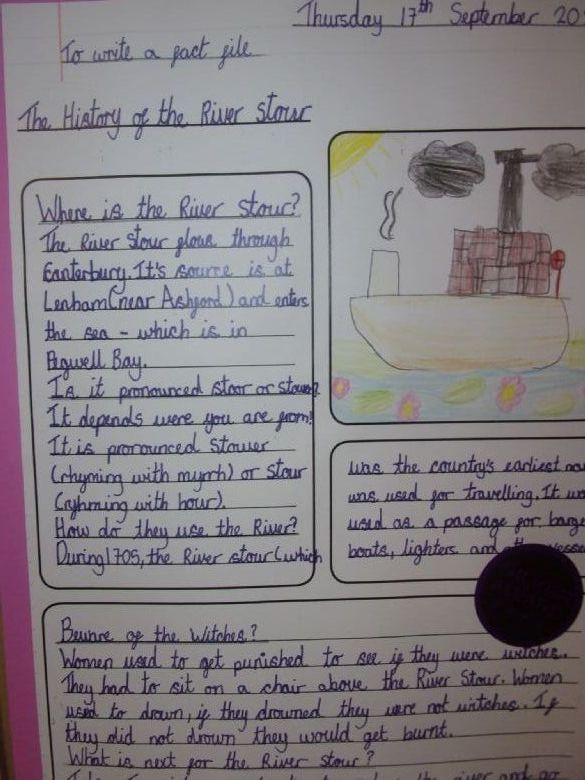 Thursday 17th September 20
To write a fact file
The History of the River Stour
Where is the River Stour?
The River Stour flows through
Canterbury. It's source is at
Lenham (near Ashford) and enters
the sea - which is in
Pegwell Bay.
Is it pronounced stoor or stower?
It depends were you are from!
It is pronounced Stower
(rhyming with myrrh) or stour
(ryhming with hour).
How do they use the River?
During 1705, the River stour (which
was the country's earliest
was used for travelling. It
used as a passage for barge
boats, lighters and
Beware of the Witches?
Women used to get punished to see if they were witches.
They had to sit on a chair above the River Stour. Women
used to drown, if they drowned they were not witches. If
they did not drown they would get burnt.
What is next for the River Stour?
the river and